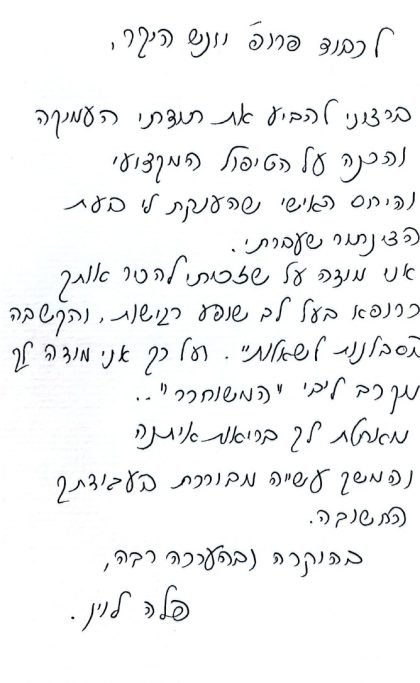 לכבוד פרופ' וונש היקר,
ברצוני להביע את תודתי העמוקה
והכנה על הטיפול המקצועי
והיחס האישי שהענקת לי בעת
הצינתור שעברתי.
אני מודה על שזכיתי להכיר אותך
כרופא בעל לב שופע רגישות, והקשבה
בסבלנות לשאלות". ועל כך אני מודה לך
מקרב ליבי "המשוחרר"..
מאחלת לך בריאות איתנה
והמשך עשייה מבורכת בעבודתך
החשובה.
בהוקרה ובהערכה רבה,
פלה לוין.